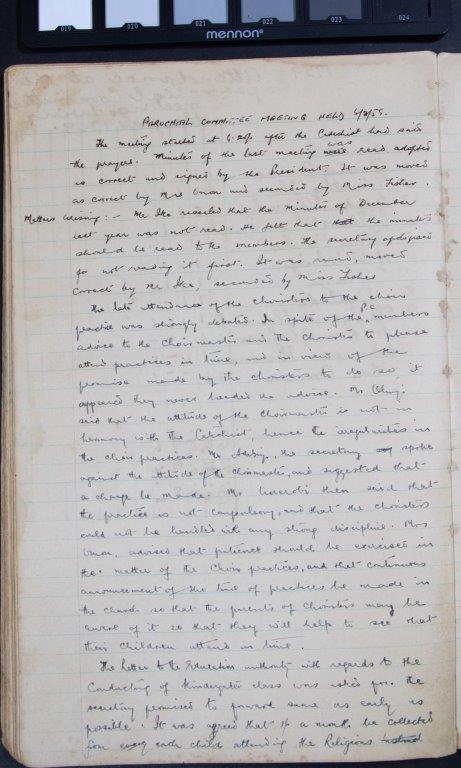 019 020 021 022 023 024
mennon
PAROCHIAL COMMITTEE MEETING HELD 6/2/59.
The meeting started at 6.20p after the Catechist had said
the prayers. Minutes of the last meeting was read adopted
as correct and signed by the President. It was moved
as correct by Mrs Onon and seconded by Miss Fisher.
Matters Arising: - Mr Ike revealed that the minutes of December
last year was not read. He felt that the minutes
should be read to the members. The secretary apologised
for not reading it first. It was read, moved
correct by Mr Ike, seconded by Miss Fisher
The late attendance of the choristers to the choir
practice was strongly debated. In spite of the P.C. members
advice to the Choirmaster and the Choristers to please
attend practices in time, and in view of the
promise made by the choristers to do so, it
appeared they never heeded the advise. Mr
said that the attitude of the Choirmaster is not in
harmony with the Catechist, hence the irregularities in
the choir practices. Mr the secretary spoke
against the attitude of the choirmaster, and suggested that
a change be made. Mr then said that
the practice is not compulsory, and that the choristers
could not be handled with any strong discipline. Mrs
Onon, advised that patience should be exercised in
the matter of the Choir practices, and that continuous
announcement of the time of practices be made in
the church so that the parents of Choristers may be
aware of it so that they will help to see that
their children attend in time.
The letter to the Education authority with regards to the
Conducting of Kindergarten class was asked for. The
secretary promised to forward same as early as
possible. It was agreed that a month be collected
from each child attending the Religious